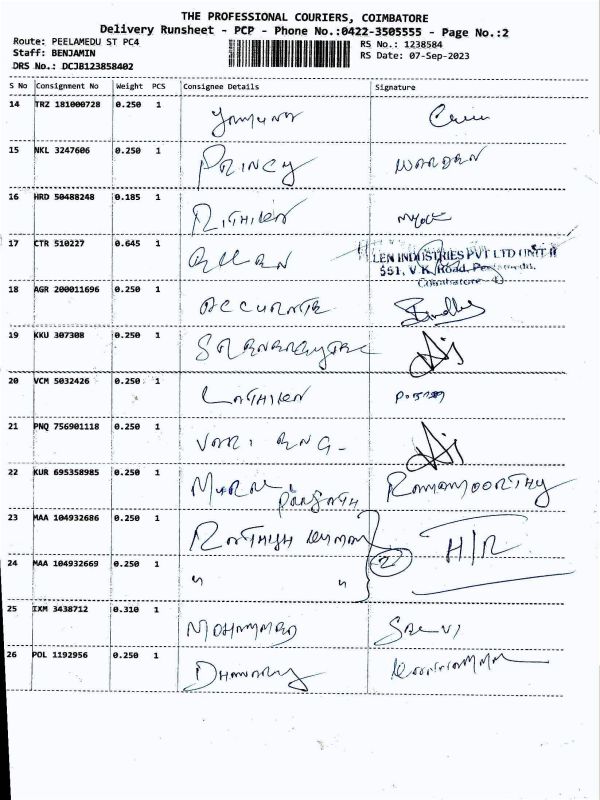 THE PROFESSIONAL COURIERS, COIMBATORE
Delivery Runsheet - PCP - Phone No.:0422-3505555 - Page No.:2
Route: PEELAMEDU ST PC4 RS No.: 1238584
Staff: BENJAMIN RS Date: 07-Sep-2023
DRS No.: DCJB123858402
S No Consignment No Weight PCS Consignee Details Signature
14 TRZ 181000728 0.250 1 Yamuna
15 NKL 3247606 0.250 1 PRINCY WARDEN
16 HRD 50488248 0.185 1
17 CTR 510227 0.645 1 LEN INDUSTRIES PVT LTD UNIT II
551, V.K. Road,
Coimbatore - 4
18 AGR 200011696 0.250 1 ACCURATE
19 KKU 307308 0.250 1
20 VCM 5032426 0.250 1
21 PNQ 756901118 0.250 1 ENG-
22 KUR 695358985 0.250 1 RAMAMOORTHY
23 MAA 104932686 0.250 1 H/R
24 MAA 104932669 0.250 1 " " 2
25 IXM 3438712 0.310 1 MOHAMMED
26 POL 1192956 0.250 1